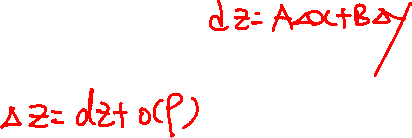 dz=AΔx+BΔy
Δz=dz+o(ρ)